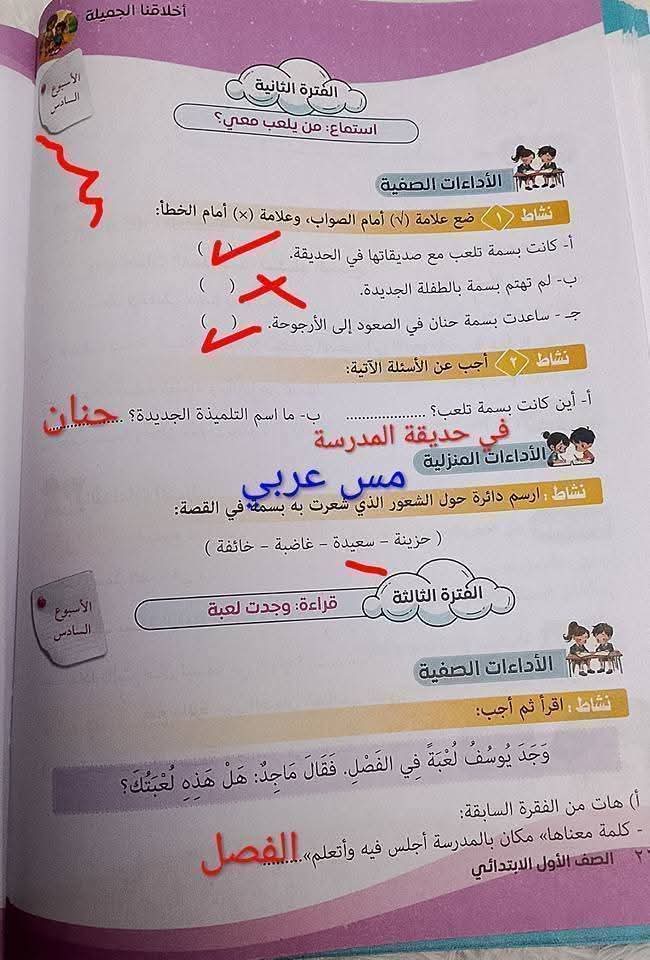 أخلاقنا الجميلة
الأسبوع
السادس
الفترة الثانية
استماع: من يلعب معي؟
الأداءات الصفية
نشاط ١ ضع علامة (√) أمام الصواب، وعلامة (×) أمام الخطأ:
أ- كانت بسمة تلعب مع صديقاتها في الحديقة. ( ✓ )
ب- لم تهتم بسمة بالطفلة الجديدة. ( × )
جـ - ساعدت بسمة حنان في الصعود إلى الأرجوحة. ( ✓ )
نشاط ٢ أجب عن الأسئلة الآتية:
أ- أين كانت بسمة تلعب؟ .................... ب- ما اسم التلميذة الجديدة؟ حنان
في حديقة المدرسة
الأداءات المنزلية
مس عربي
نشاط : ارسم دائرة حول الشعور الذي شعرت به بسمة في القصة:
( حزينة - سعيدة - غاضبة - خائفة )
الأسبوع
السادس
الفترة الثالثة
قراءة: وجدت لعبة
الأداءات الصفية
نشاط : اقرأ ثم أجب:
وَجَدَ يُوسُفُ لُعْبَةً فِي الفَصْلِ. فَقَالَ مَاجِدٌ: هَلْ هَذِهِ لُعْبَتُكَ؟
أ) هات من الفقرة السابقة:
- كلمة معناها» مكان بالمدرسة أجلس فيه وأتعلم»........ الفصل
الصف الأول الابتدائي